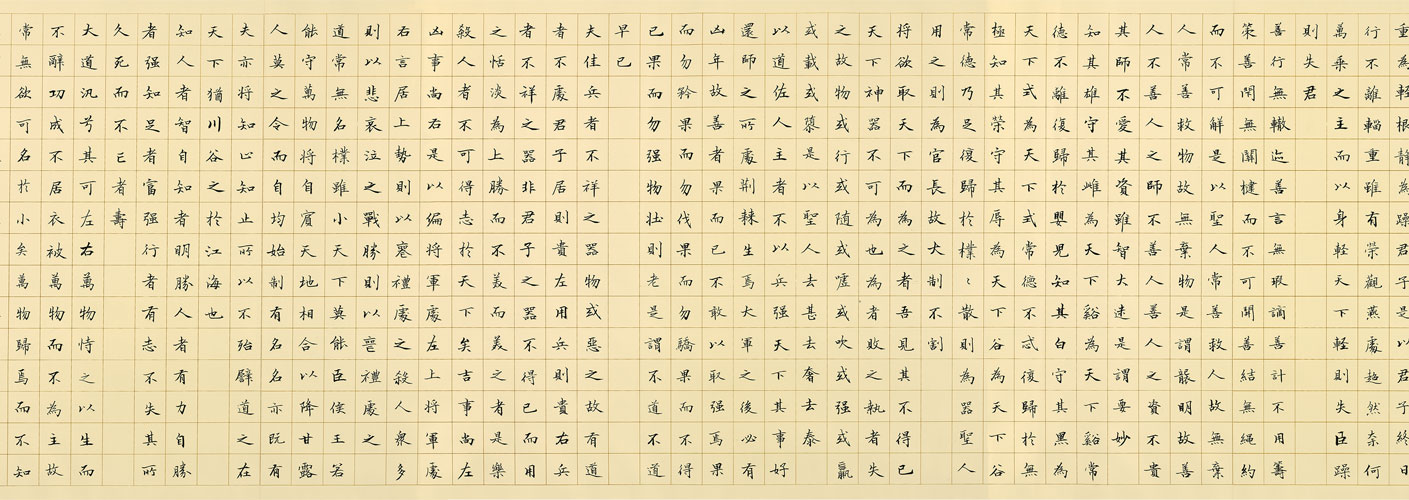 重為輕根靜為躁君子是以君子終日
行不離輜重雖有榮觀燕處超然奈何
萬乘之主而以身輕天下輕則失臣躁
則失君
善行無轍迹善言無瑕謫善計不用籌
策善閉無關楗而不可開善結無繩約
而不可解是以聖人常善救人故無棄
人常善救物故無棄物是謂襲明故善
人不善人之師不善人善人之資不貴
其師不愛其資雖智大迷是謂要妙
知其雄守其雌為天下谿為天下谿常
德不離復歸於嬰兒知其白守其黑為
天下式為天下式常德不忒復歸於無
極知其榮守其辱為天下谷為天下谷
常德乃足復歸於樸〻散則為器聖人
用之則為官長故大制不割
將欲取天下而為之者吾見其不得已
天下神器不可為也為者敗之執者失
之故物或行或隨或噓或吹或强或羸
或載或隳是以聖人去甚去奢去泰
以道佐人主者不以兵强天下其事好
還師之所處荆棘生焉大軍之後必有
凶年故善者果而已不敢以取强焉果
而勿矜果而勿伐果而勿驕果而不得
已果而勿强物壯則老是謂不道不道
早已
夫佳兵者不祥之器物或惡之故有道
者不處君子居則貴左用兵則貴右兵
者不祥之器非君子之器不得已而用
之恬淡為上勝而不美而美之者是樂
殺人者不可得志於天下矣吉事尚左
凶事尚右是以偏將軍處左上將軍處
右言居上勢則以喪禮處之殺人衆多
則以悲哀泣之戰勝則以喪禮處之
道常無名樸雖小天下莫能臣侯王若
能守萬物將自賓天地相合以降甘露
人莫之令而自均始制有名名亦既有
夫亦將知止知止所以不殆譬道之在
天下猶川谷之於江海也
知人者智自知者明勝人者有力自勝
者强知足者富强行者有志不失其所
久死而不亡者壽
大道汎兮其可左右萬物恃之以生而
不辭功成不居衣被萬物而不為主故
常無欲可名於小矣萬物歸焉而不知